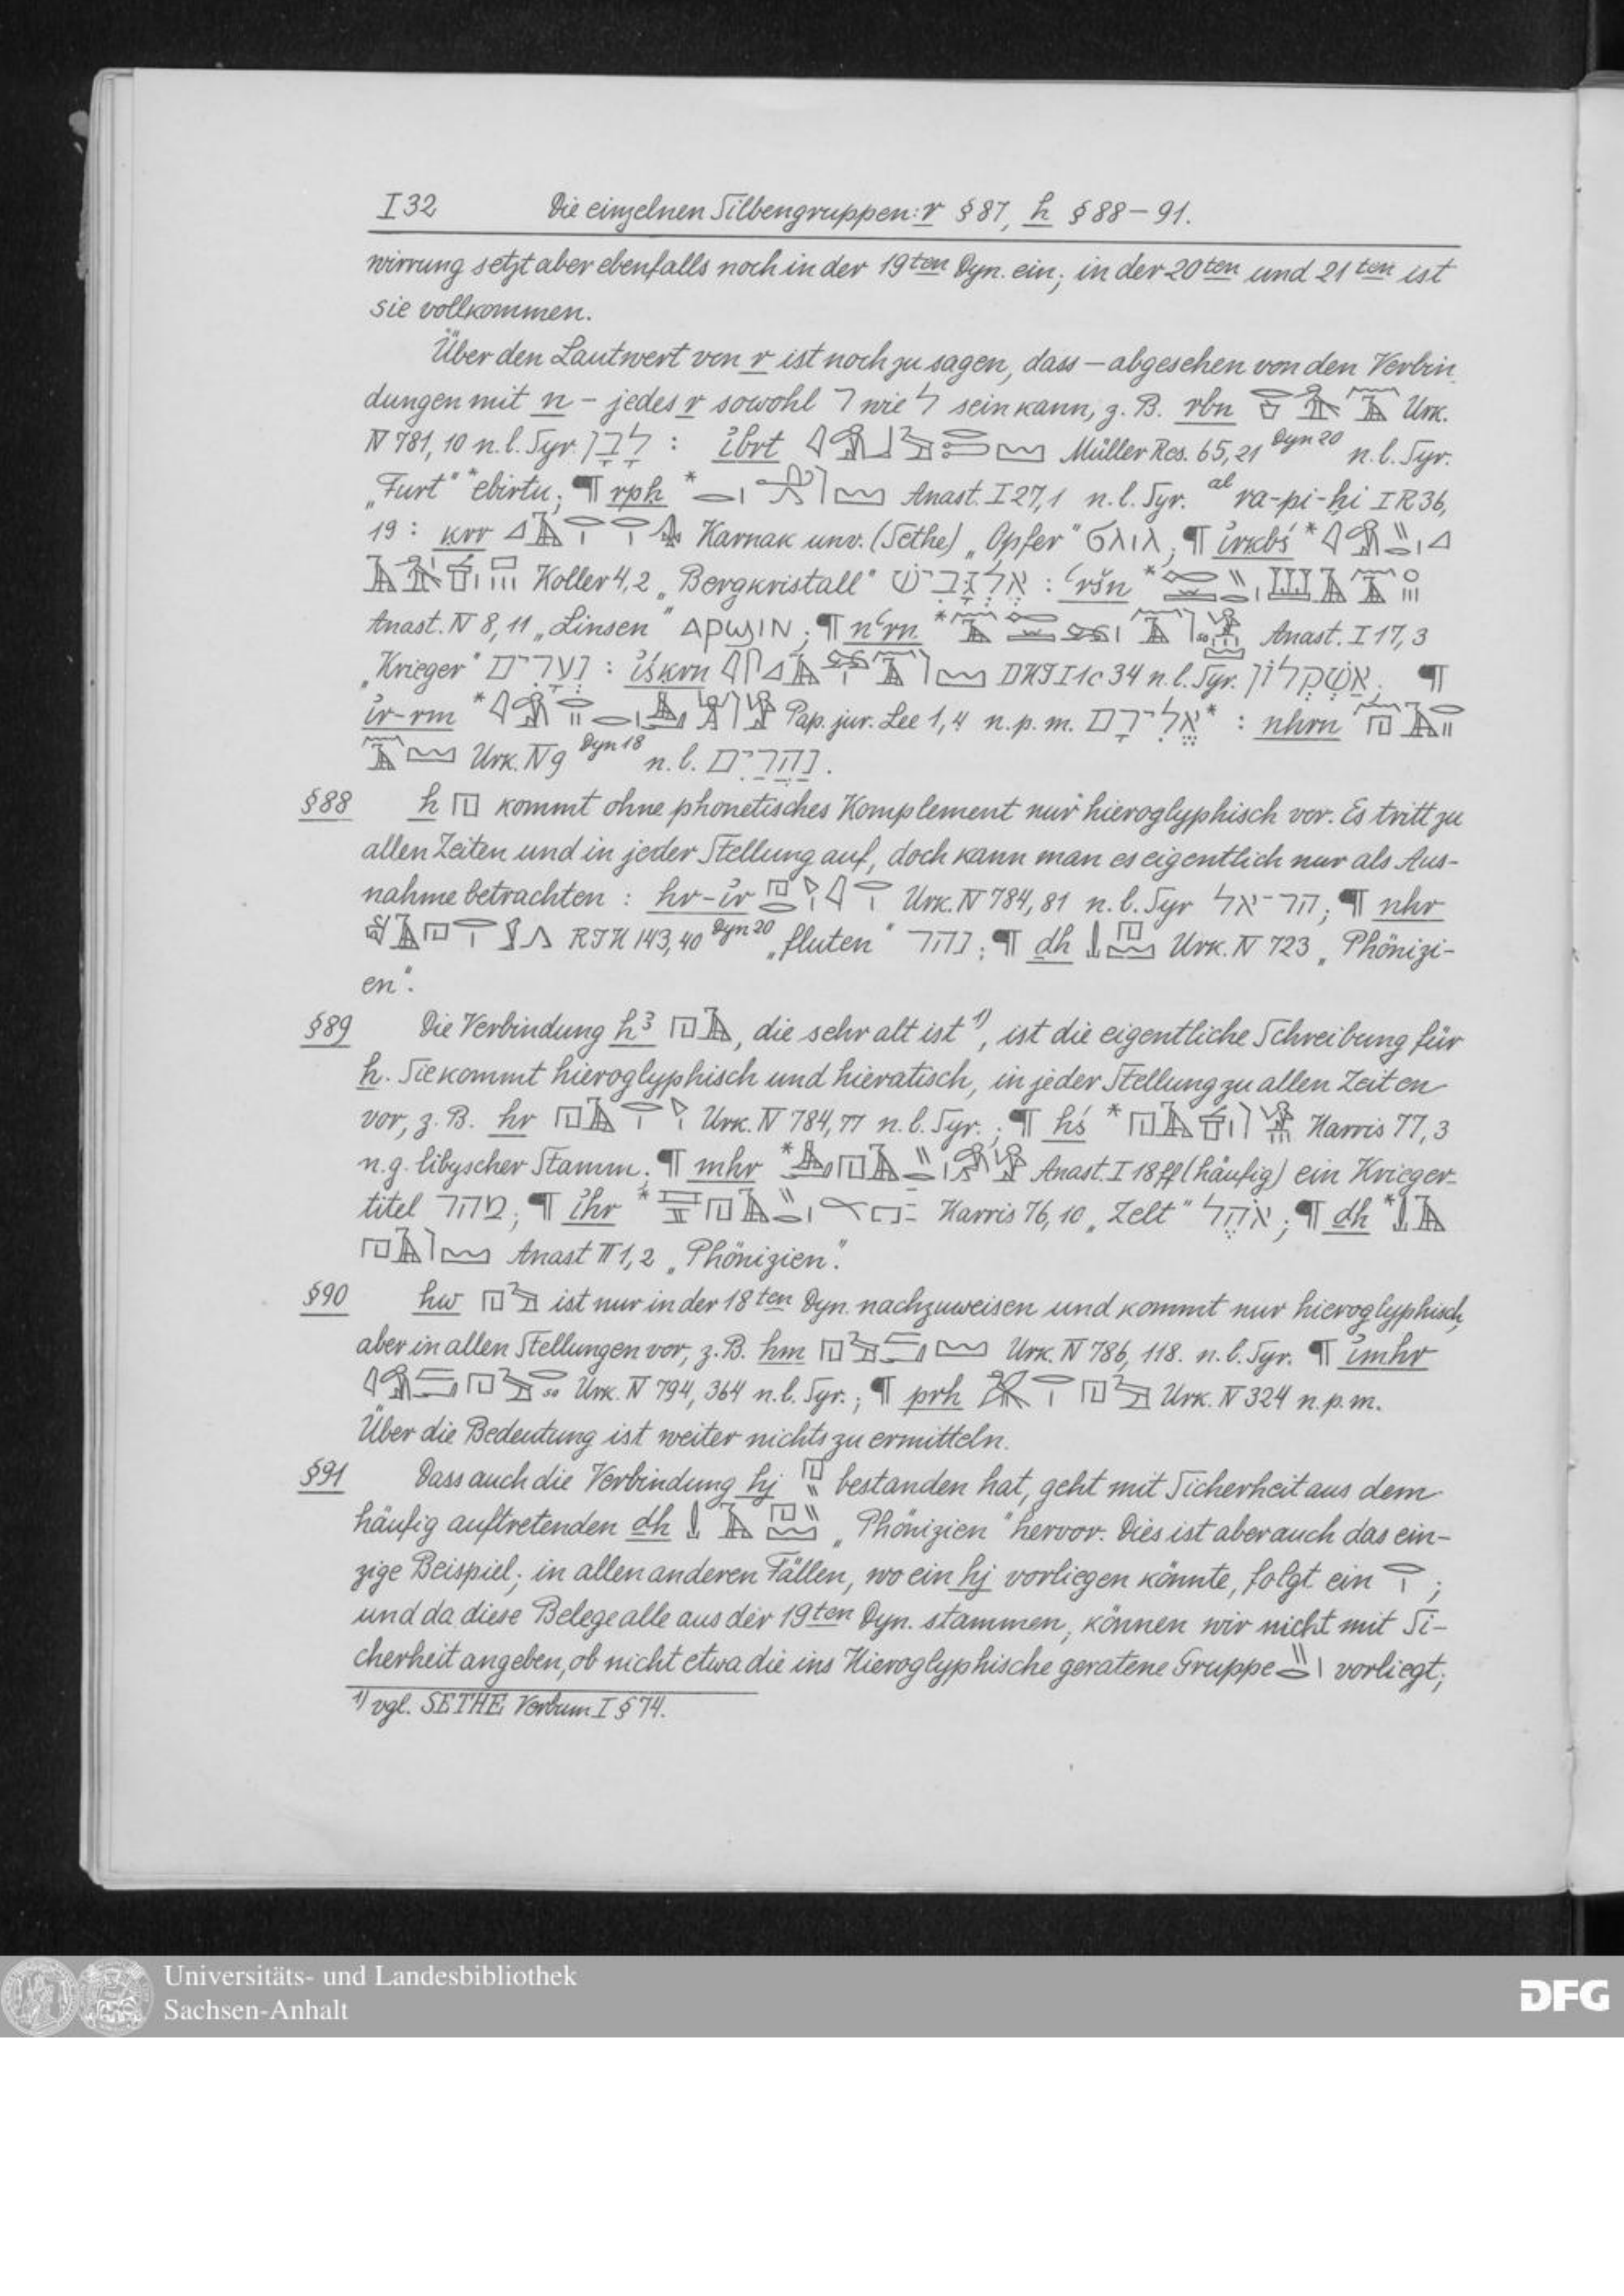 I 32 Die einzelnen Silbengruppen: r § 87, h § 88 – 91.
wirrung setzt aber ebenfalls noch in der 19ten Dyn. ein; in der 20ten und 21ten ist
sie vollkommen.
Über den Lautwert von r ist noch zu sagen, dass – abgesehen von den Verbin
dungen mit n – jedes r sowohl ר wie ל sein kann, z. B. rbn Urk.
IV 781, 10 n. l. Syr. לָבָן : ỉbrt Müller Res. 65, 21 Dyn 20 n. l. Syr.
„Furt“ *ebirtu; ¶ rph * Anast. I 27, 1 n. l. Syr. al ra-pi-ḫi I R 36,
19 : krr Karnak unv. (Sethe) „Opfer“ ϭⲗⲓⲗ; ¶ ỉrkbś *
Koller 4, 2 „Bergkristall“ אֶלְגָּבִישׁ : ʿršn *
Anast. IV 8, 11 „Linsen“ ⲁⲣϣⲓⲛ; ¶ nʿrn * Anast. I 17, 3
„Krieger“ נְעָרִים : ỉśkrn I 1c 34 n. l. Syr. אַשְׁקְלוֹן; ¶
ỉr-rm * Pap. jur. Lee 1, 4 n. p. m. אֱלִירָם* : nhrn
Urk. IV 9 Dyn 18 n. l. נַהֲרַיִם.
§ 88 h kommt ohne phonetisches Komplement nur hieroglyphisch vor. Es tritt zu
allen Zeiten und in jeder Stellung auf, doch kann man es eigentlich nur als Aus-
nahme betrachten : hr-ỉr Urk. IV 784, 81 n. l. Syr הר־אל; ¶ nhr
143, 40 Dyn 20 „fluten“ נהר; ¶ dh Urk. IV 723 „Phönizi-
en“.
§ 89 Die Verbindung hꜣ , die sehr alt ist 1), ist die eigentliche Schreibung für
h. Sie kommt hieroglyphisch und hieratisch, in jeder Stellung zu allen Zeiten
vor, z. B. hr Urk. IV 784, 77 n. l. Syr.; ¶ hś * Harris 77, 3
n. g. libyscher Stamm; ¶ mhr * Anast. I 18 ff (häufig) ein Krieger-
titel מהר; ¶ ỉhr * Harris 76, 10 „Zelt“ אֹהֶל; ¶ dh *
Anast III 1, 2 „Phönizien“.
§ 90 hw ist nur in der 18ten Dyn. nachzuweisen und kommt nur hieroglyphisch,
aber in allen Stellungen vor, z. B. hm Urk. IV 786, 118. n. l. Syr. ¶ ỉmhr
Urk. IV 794, 364 n. l. Syr.; ¶ prh Urk. IV 324 n. p. m.
Über die Bedeutung ist weiter nichts zu ermitteln.
§ 91 Dass auch die Verbindung hj bestanden hat, geht mit Sicherheit aus dem
häufig auftretenden dh „Phönizien“ hervor. Dies ist aber auch das ein-
zige Beispiel; in allen anderen Fällen, wo ein hj vorliegen könnte, folgt ein ;
und da diese Belege alle aus der 19ten Dyn. stammen, können wir nicht mit Si-
cherheit angeben, ob nicht etwa die ins Hieroglyphische geratene Gruppe vorliegt;
1) vgl. SETHE, Verbum I § 74.
Universitäts- und Landesbibliothek
Sachsen-Anhalt
DFG